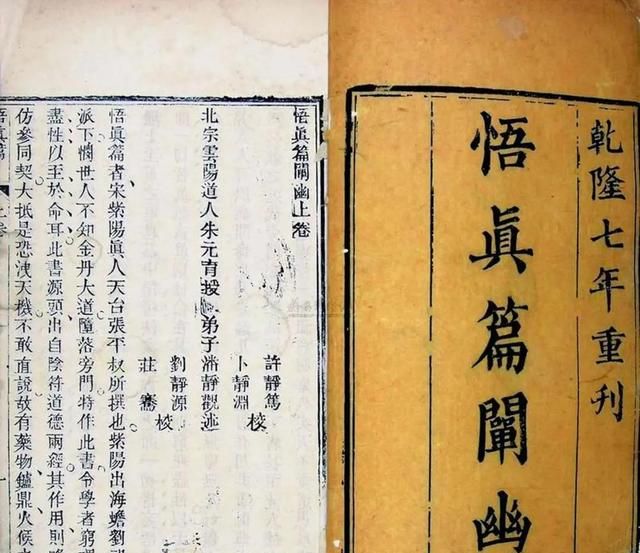 乾隆七年重刊
悟眞篇闡幽
悟眞篇闡幽上卷
許靜篤
卜靜淵
校
北宗雲陽道人朱元育授 弟子潘靜觀述
劉靜源
莊
校
悟眞篇者宋紫陽眞人天台張平叔所撰也紫陽出海蟾劉
派下憫世人不知金丹大道墮落旁門特作此書令學者窮
盡性以至於命耳此書源頭出自陰符道德兩經其作用則
仿參同契大抵是恐洩天機不敢直說故有藥物鑪鼎火候
悟眞篇 上卷